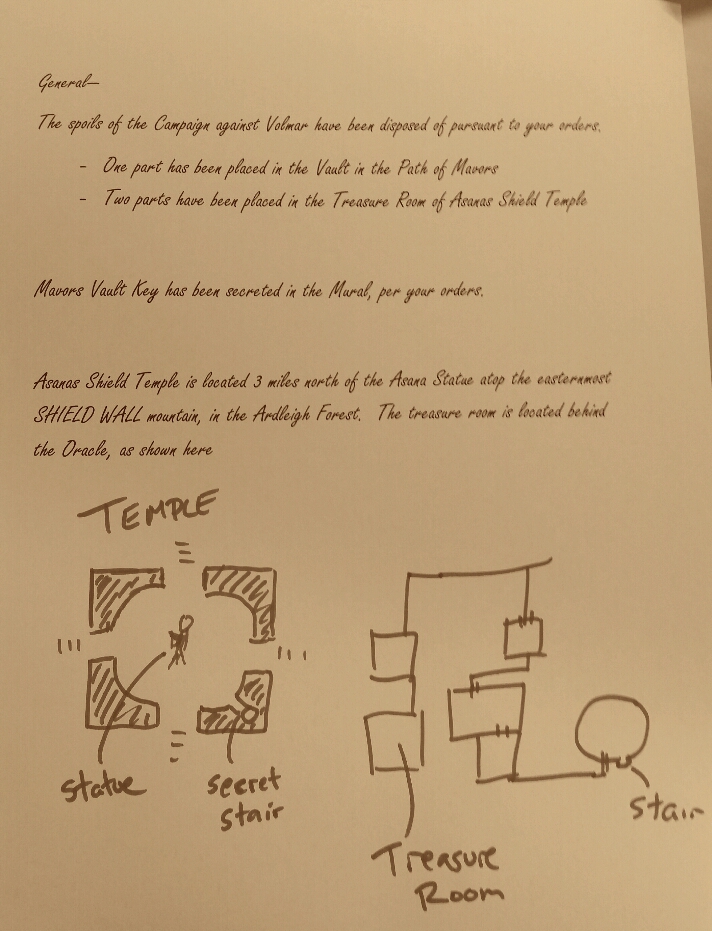 General—
The spoils of the Campaign against Volmar have been disposed of pursuant to your orders.
- One part has been placed in the Vault in the Path of Mavors
- Two parts have been placed in the Treasure Room of Asanas Shield Temple
Mavors Vault Key has been secreted in the Mural, per your orders.
Asanas Shield Temple is located 3 miles north of the Asana Statue atop the easternmost
SHIELD WALL mountain, in the Ardleigh Forest. The treasure room is located behind
the Oracle, as shown here
TEMPLE
statue
secret
stair
stair
Treasure
Room